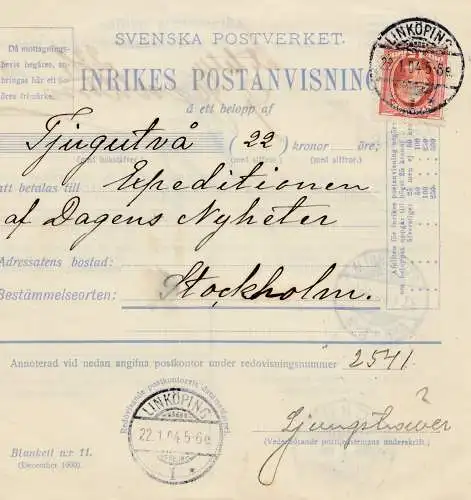 SVENSKA POSTVERKET.
Då mottagnings-
bevis begäres, an-
bringas här ett
öres frimärke.
LINKÖPING
22.1.04 5-6 e.
INRIKES POSTANVISNING
å ett belopp af
Tjugutvå (22) kronor öre;
(med bokstäfver) (med siffror) (med siffror)
att betalas till Expeditionen
af Dagens Nyheter
Adressatens bostad:
Bestämmelseorten: Stockholm.
Annoterad vid nedan angifna postkontor under redovisningsnummer 2541
Redovisande postkontorets datumstämpel.
LINKÖPING
22.1.04 5-6 e.
1
Blankett n:r 11.
(December 1900).
(Vederbörande posttjänstemans underskrift.)